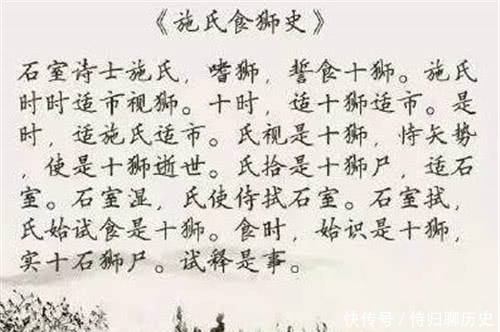 《施氏食狮史》
石室诗士施氏，嗜狮，誓食十狮。施氏
时时适市视狮。十时，适十狮适市。是
时，适施氏适市。氏视是十狮，恃矢势
，使是十狮逝世。氏拾是十狮尸，适石
室。石室湿，氏使侍拭石室。石室拭，
氏始试食是十狮。食时，始识是十狮，
实十石狮尸。试释是事。
快传号/恃归聊历史